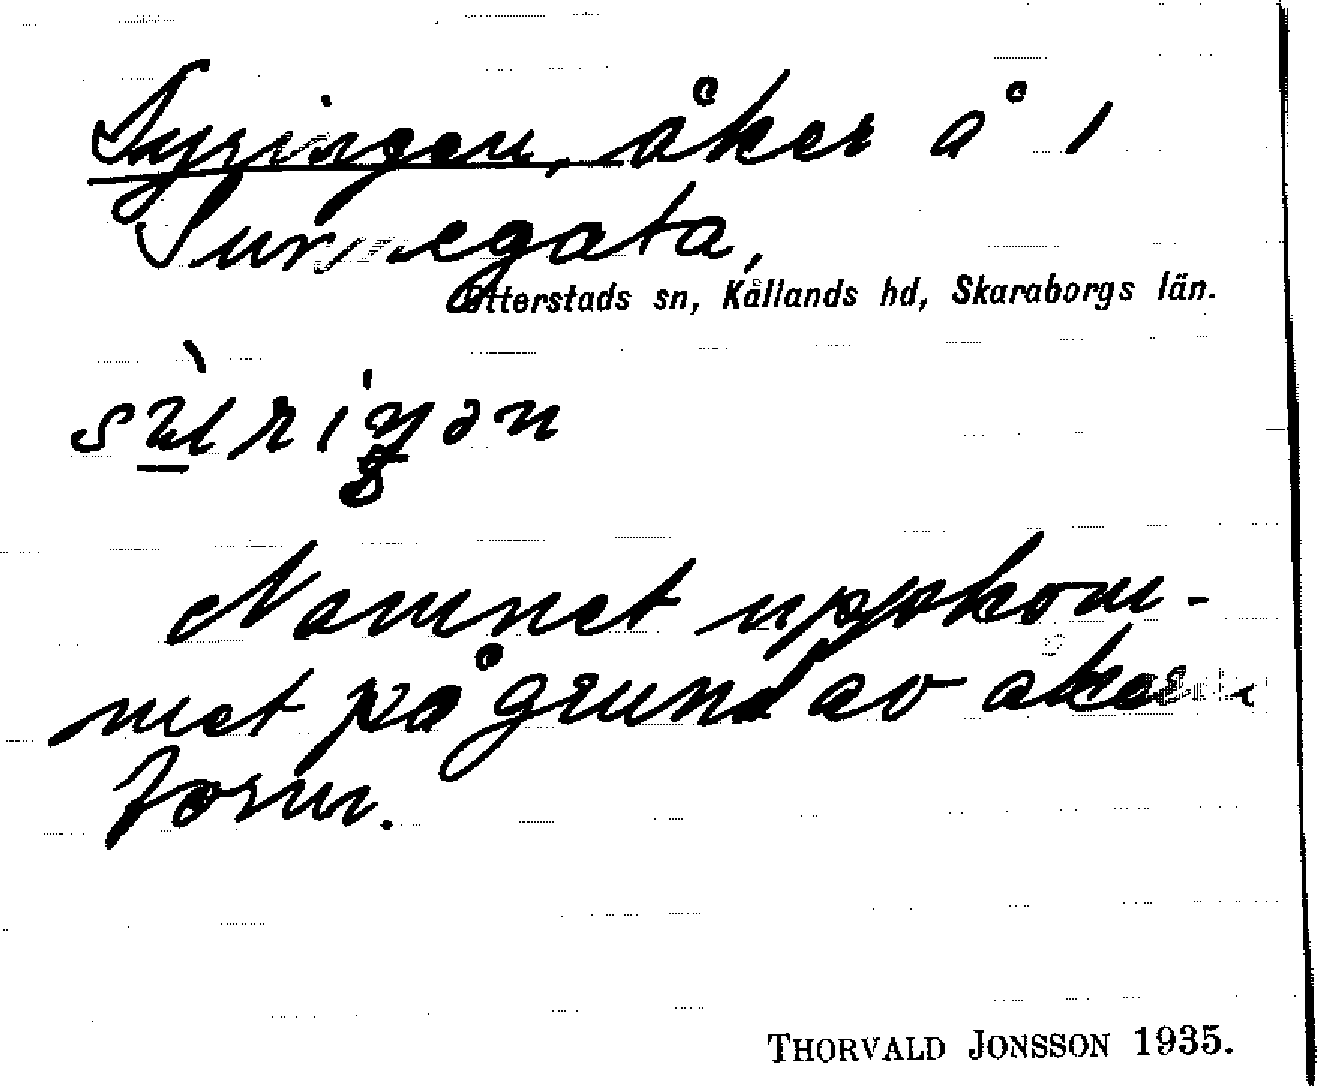 Syringen, åker å 1
Surnegata,
Otterstads sn, Kållands hd, Skaraborgs län.
Namnet uppkom-
met på grund av åkerns
form.
THORVALD JONSSON 1935.